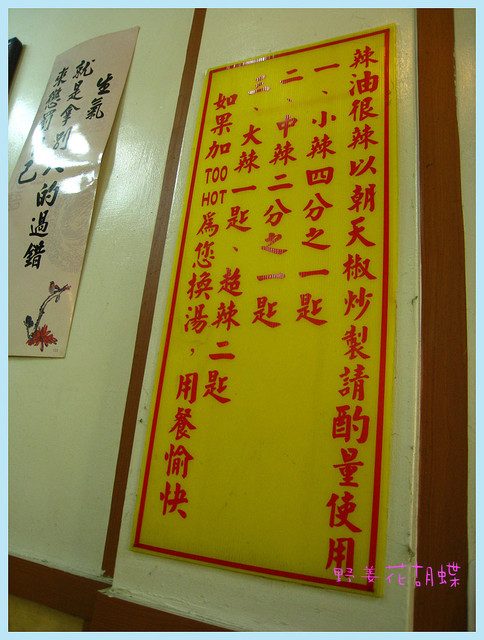 辣油很辣以朝天椒炒製請酌量使用
一、小辣四分之一匙
二、中辣二分之一匙
三、大辣一匙、超辣二匙
如果加TOO HOT為您換湯，用餐愉快
生氣
就是拿別人的過錯
來懲罰自己
野姜花胡蝶